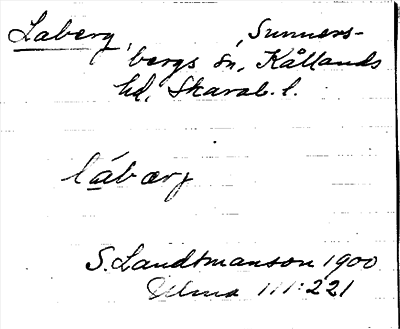 Laberg, Sunners-
bergs sn, Kållands
hd, Skarab. l.
lábærj
S. Landtmanson 1900
Ulma 111:221